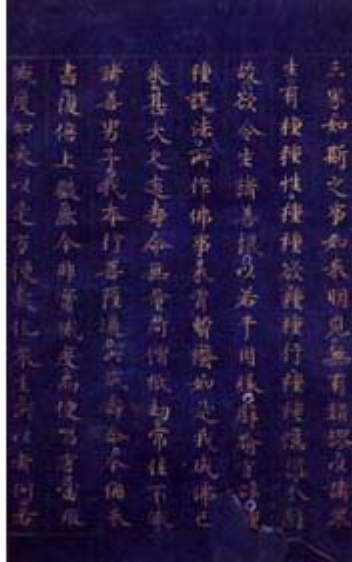 三界如斯之事如來明見無有錯謬以諸眾
生有種種性種種欲種種行種種憶想分別
故欲令生諸善根以若干因緣譬喻言辭種
種說法所作佛事未曾暫廢如是我成佛已
來甚大久遠壽命無量阿僧祇劫常住不滅
諸善男子我本行菩薩道所成壽命今猶未
盡復倍上數然今非實滅度而便唱言當取
滅度如來以是方便教化眾生所以者何若